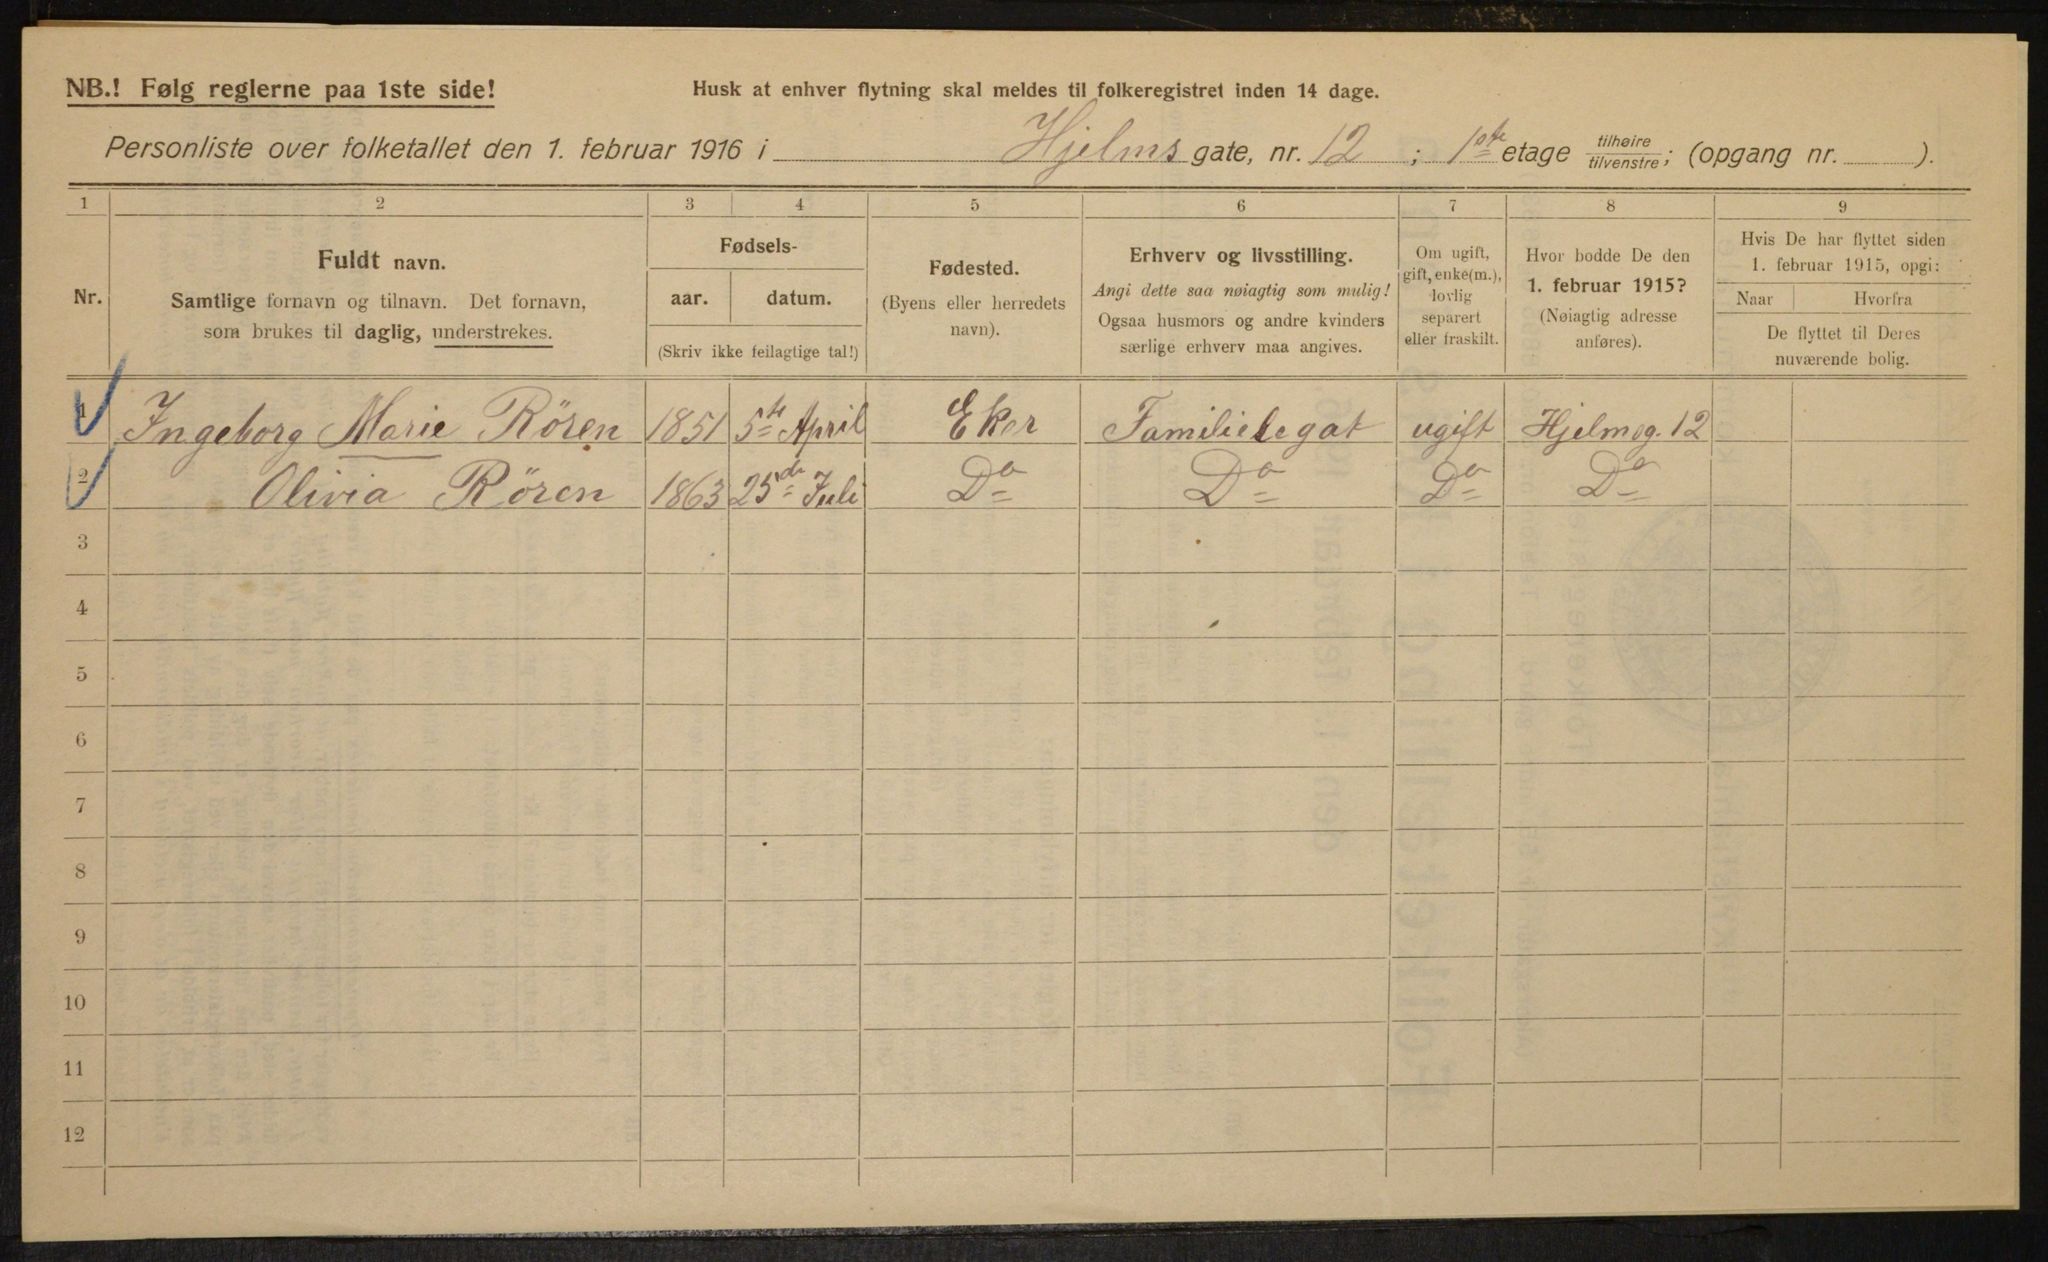 NB.! Følg reglerne paa 1ste side!
Husk at enhver flytning skal meldes til folkeregistret inden 14 dage.
Personliste over folketallet den 1. februar 1916 i Hjelms gate, nr. 12 ; 1ste etage tilhøire/tilvenstre; (opgang nr. ).
1 2 3 4 5 6 7 8 9
Nr.
Fuldt navn.
Samtlige fornavn og tilnavn. Det fornavn,
som brukes til daglig, understrekes.
Fødsels-
aar. datum.
(Skriv ikke feilagtige tal!)
Fødested.
(Byens eller herredets
navn).
Erhverv og livsstilling.
Angi dette saa nøiagtig som mulig!
Ogsaa husmors og andre kvinders
særlige erhverv maa angives.
Om ugift,
gift, enke(m.),
lovlig
separert
eller fraskilt.
Hvor bodde De den
1. februar 1915?
(Nøiagtig adresse
anføres).
Hvis De har flyttet siden
1. februar 1915, opgi:
Naar Hvorfra
De flyttet til Deres
nuværende bolig.
1 Ingeborg Marie Rören 1851 5te April Eker Familielegat ugift Hjelmsg. 12
2 Olivia Rören 1863 25de Juli Do Do Do Do
3
4
5
6
7
8
9
10
11
12